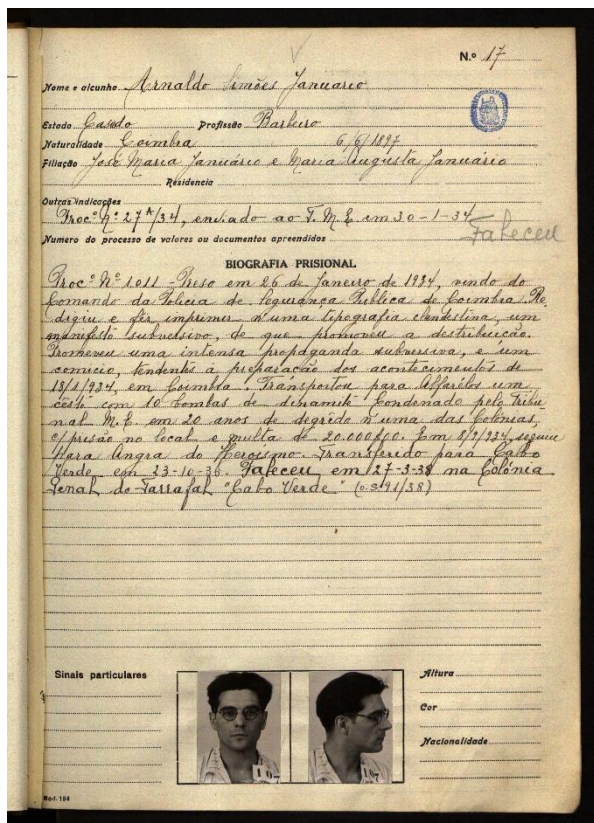 N.º 17
Nome e alcunha Arnaldo Simões Januario
Estado Casado Profissão Barbeiro
Naturalidade Coimbra 6/6/1897
Filiação José Maria Januário e Maria Augusta Januário
Residencia
Outras indicações
Procº Nº 27A/34, enviado ao T. M. E. em 30-1-34
Faleceu
Numero do processo de valores ou documentos apreendidos
BIOGRAFIA PRISIONAL
Procº Nº 1.011 - Preso em 26 de Janeiro de 1934, vindo do
Comando da Policia de Segurança Publica de Coimbra. Re-
digiu e fez imprimir n'uma tipografia clandestina, um
manifesto subversivo, de que promoveu a destribuicão.
Promoveu uma intensa propaganda subversiva, e um
comicio, tendentes á preparação dos acontecimentos de
18/1/934, em Coimbra. Transportou para Alfarelos um
cêsto com 10 bombas de dinamite. Condenado pelo Tribu-
nal M. E. em 20 anos de degrêdo n'uma das Colónias,
c/ prisão no local e multa de 20.000$00. Em 8/9/934, seguiu
para Angra do Heroismo. Transferido para Cabo
Verde em 23-10-36. Faleceu em 27-3-38 na Colónia
Penal do Tarrafal "Cabo Verde" (o.s. 91/38)
Sinais particulares
Altura
Cor
Nacionalidade
107
107
Mod. 194